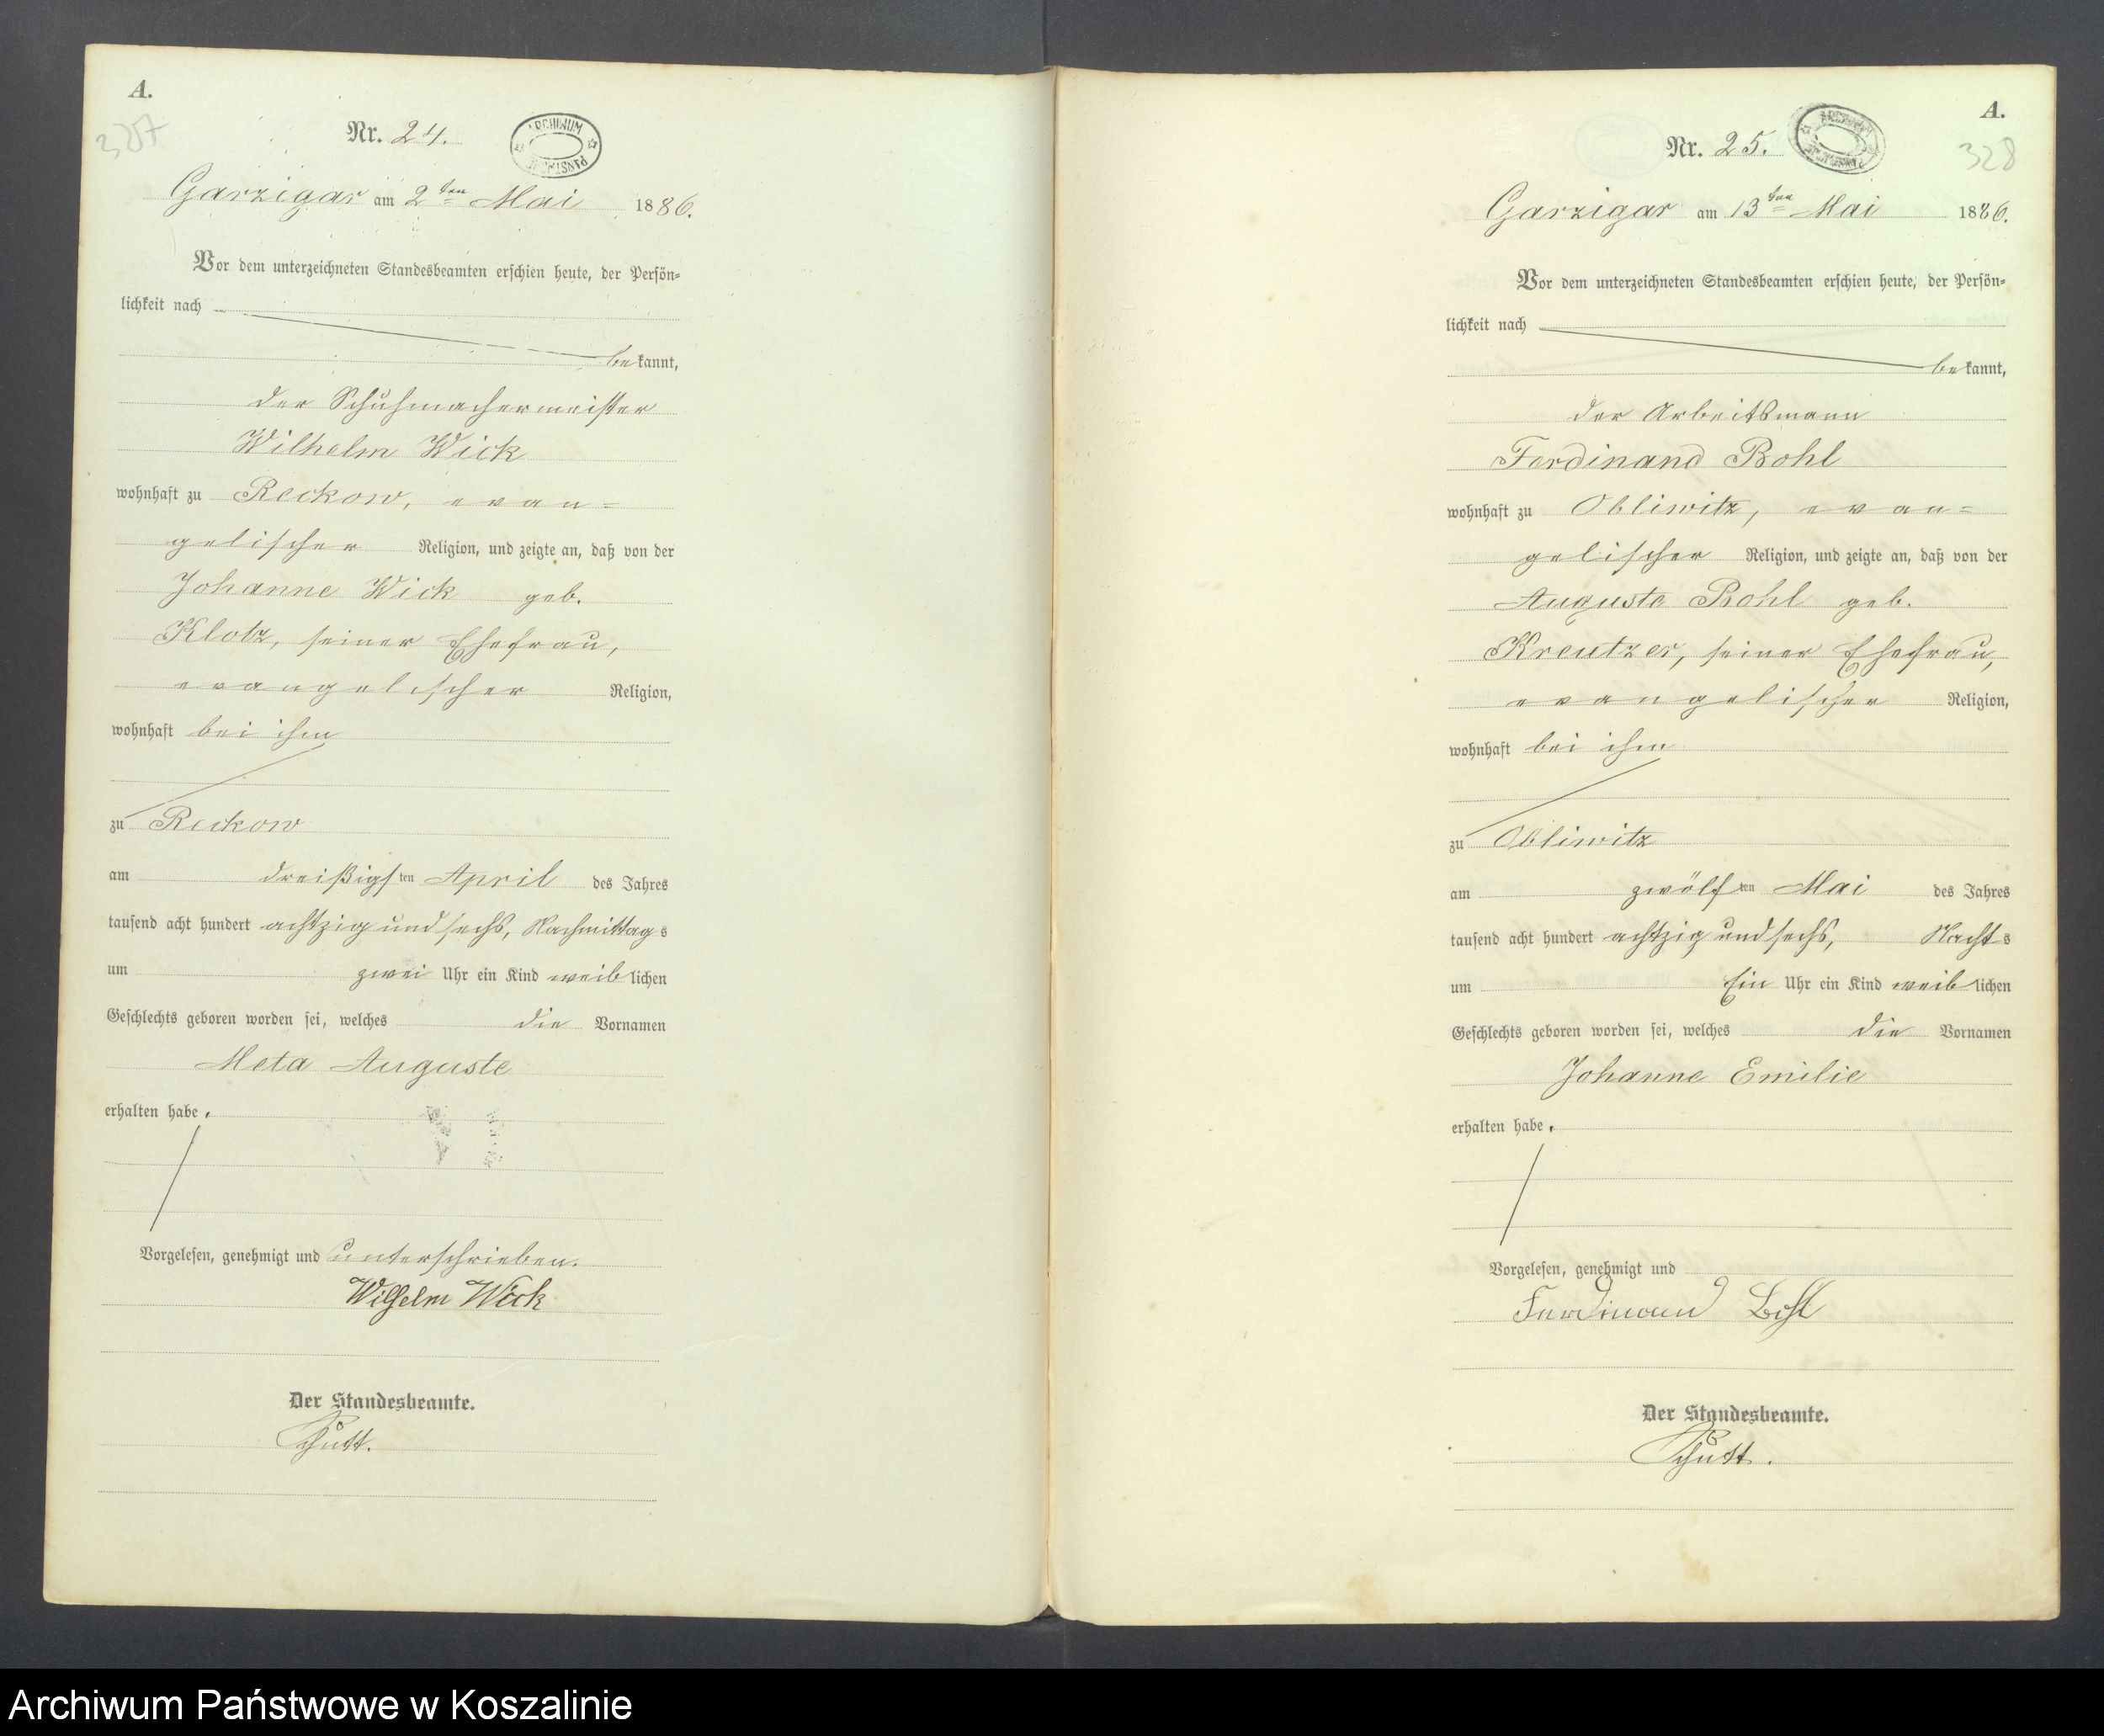 A.
327
Nr. 24.
ARCHIWUM
Garzigar am 2ten Mai 1886.
Vor dem unterzeichneten Standesbeamten erschien heute, der Persön-
lichkeit nach
bekannt,
der Schuhmachermeister
Wilhelm Wick
wohnhaft zu Reckow, evan=
gelischer Religion, und zeigte an, daß von der
Johanne Wick geb.
Klotz, seiner Ehefrau,
evangelischer Religion,
wohnhaft bei ihm
zu Reckow
am dreißigsten April des Jahres
tausend acht hundert achtzig und sechs, Nachmittags
um zwei Uhr ein Kind weiblichen
Geschlechts geboren worden sei, welches die Vornamen
Meta Auguste
erhalten habe.
Vorgelesen, genehmigt und unterschrieben.
Wilhelm Wick
Der Standesbeamte.
Schutt.
A.
328
Nr. 25.
Garzigar am 13ten Mai 1886.
Vor dem unterzeichneten Standesbeamten erschien heute, der Persön-
lichkeit nach
bekannt,
der Arbeitsmann
Ferdinand Bohl
wohnhaft zu Obliwitz, evan=
gelischer Religion, und zeigte an, daß von der
Auguste Bohl geb.
Kreutzer, seiner Ehefrau,
evangelischer Religion,
wohnhaft bei ihm
zu Obliwitz
am zwölften Mai des Jahres
tausend acht hundert achtzig und sechs, Nachts
um Ein Uhr ein Kind weiblichen
Geschlechts geboren worden sei, welches die Vornamen
Johanne Emilie
erhalten habe.
Vorgelesen, genehmigt und
Ferdinand Bohl
Der Standesbeamte.
Schutt.
Archiwum Państwowe w Koszalinie